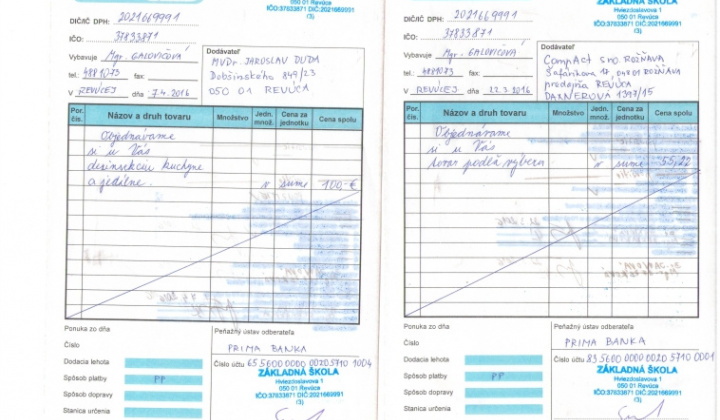 050 01 Revúca
IČO:37833871 DIČ:2021669991
(3)
DIČ/IČ DPH: 2021669991
IČO: 37833871
Vybavuje Mgr. GALOVIČOVÁ
tel.: 4881073 fax:
V REVÚCEJ dňa 7.4.2016
Dodávateľ
MVDr. JAROSLAV DUDA
Dobšinského 849/23
050 01 REVÚCA
Por. čís.
Názov a druh tovaru
Množstvo
Jedn. množ.
Cena za jednotku
Cena spolu
Objednávame
si u Vás
dezinsekciu kuchyne
a jedálne v sume 100,-€
Ponuka zo dňa
Číslo
Dodacia lehota
Spôsob platby PP
Spôsob dopravy
Stanica určenia
Peňažný ústav odberateľa
PRIMA BANKA
Číslo účtu 65 5600 0000 0020 5710 1004
ZÁKLADNÁ ŠKOLA
Hviezdoslavova 1
050 01 Revúca
IČO:37833871 DIČ:2021669991
(3)
ZÁKLADNÁ ŠKOLA
Hviezdoslavova 1
050 01 Revúca
IČO:37833871 DIČ:2021669991
(3)
DIČ/IČ DPH: 2021669991
IČO: 37833871
Vybavuje Mgr. GALOVIČOVÁ
tel.: 4881073 fax:
V REVÚCEJ dňa 22.3.2016
Dodávateľ
CompAct sro ROŽŇAVA
Šafárikova 17, 04801 ROŽŇAVA
predajňa REVÚCA
DAXNEROVA 1397/15
Por. čís.
Názov a druh tovaru
Množstvo
Jedn. množ.
Cena za jednotku
Cena spolu
Objednávame
si u Vás
tovar podľa výberu v sume 55,22
Ponuka zo dňa
Číslo
Dodacia lehota
Spôsob platby PP
Spôsob dopravy
Stanica určenia
Peňažný ústav odberateľa
PRIMA BANKA
Číslo účtu 83 5600 0000 0020 5710 0001
ZÁKLADNÁ ŠKOLA
Hviezdoslavova 1
050 01 Revúca
IČO:37833871 DIČ:2021669991
(3)